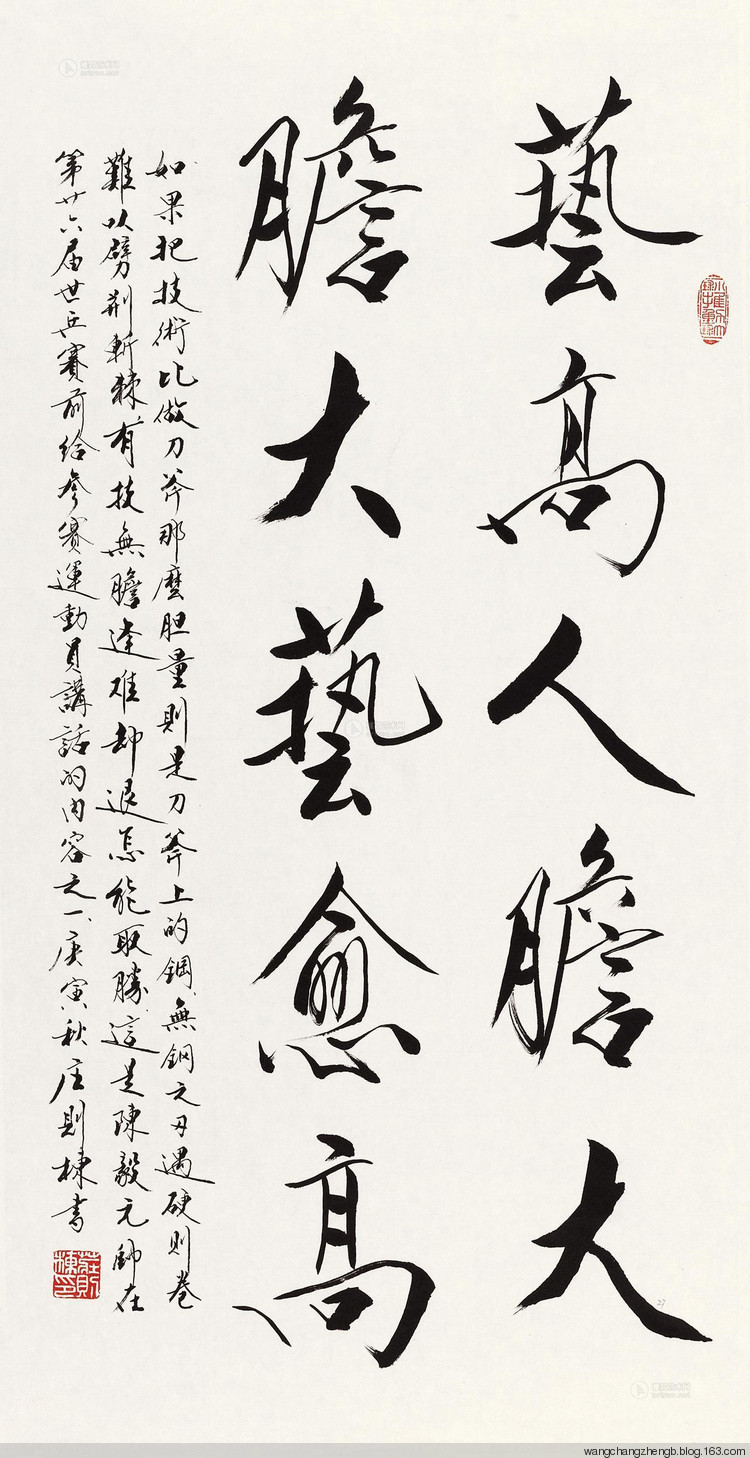 藝高人膽大
膽大藝愈高
如果把技術比做刀斧那麼胆量則是刀斧上的鋼無鋼之刃遇硬則卷
難以劈荆斬棘有技無膽逢难却退怎能取勝這是陳毅元帥在
第廿六届世乒賽前给參賽運動員講話的内容之一庚寅秋庄則棟書
莊則棟印
wangchangzhengb.blog.163.com